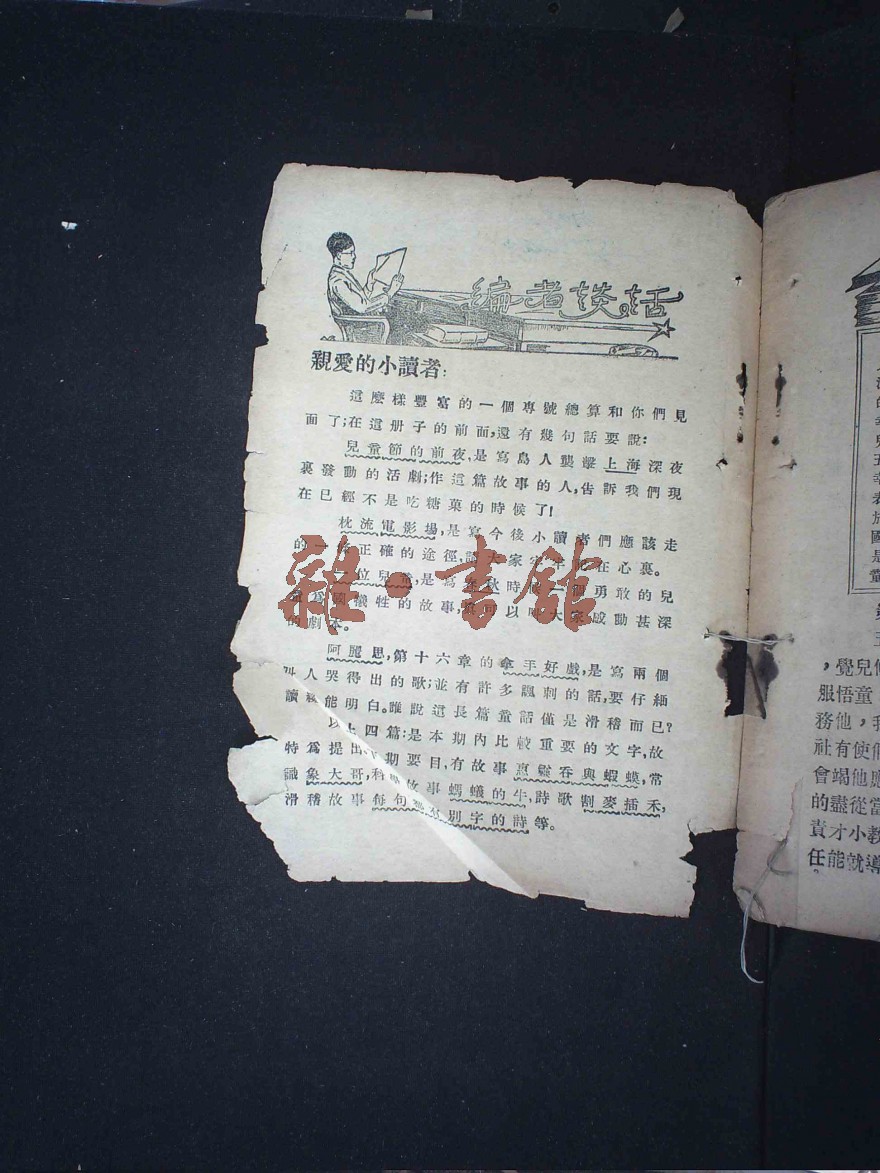 編者談話
親愛的小讀者：
這麽樣豐富的一個專號總算和你們見
面了；在這册子的前面，還有幾句話要說：
兒童節的前夜，是寫島人襲擊上海深夜
裏發動的活劇；作這篇故事的人，告訴我們現
在已經不是吃糖菓的時候了！
枕流電影場，是寫今後小讀者們應該走
的一條正確的途徑，請大家牢牢記在心裏。
位兒童，是寫春秋時候一個勇敢的兒
童爲國犧牲的故事，可以使大家感動甚深
的劇本。
阿麗思，第十六章的拿手好戲，是寫兩個
叫人哭得出的歌；並有許多諷刺的話，要仔細
讀纔能明白。雖說這長篇童話僅是滑稽而已？
以上四篇：是本期內比較重要的文字，故
特爲提出。期要目，有故事惠吞與蝦蟆，常
識象大哥，科學故事螞蟻的牛，詩歌割麥插禾，
滑稽故事每句別字的詩等。
雜·書館
覺兒
服悟童
務他，我
社有使
會竭他應
的盡從當
責才小教
任能就導